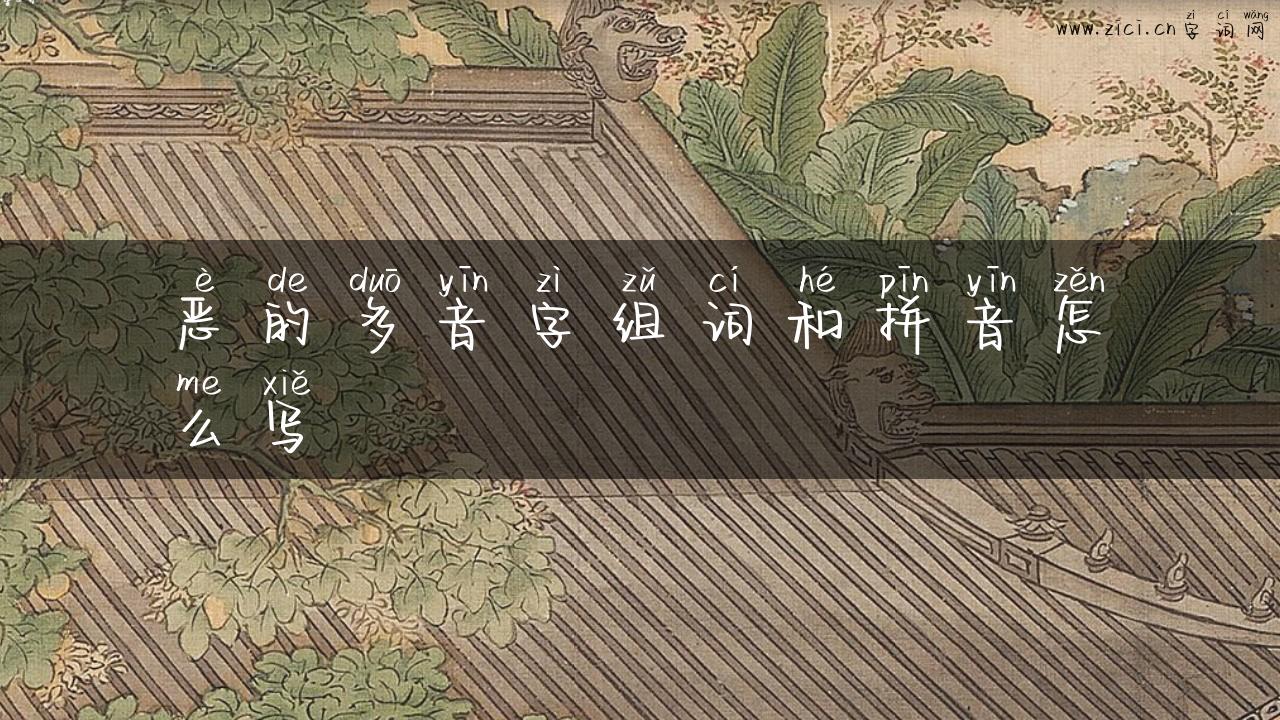 zì cí wǎng
www.zici.cn 字词网
è de duō yīn zì zǔ cí hé pīn yīn zěn
恶的多音字组词和拼音怎
me xiě
么写